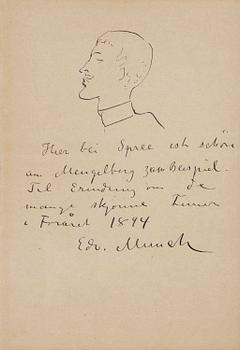 Hier bei Spree ist schön
am Mengelberg zum Beispiel.
Til Erindring om de
mange skjønne Timer
i Foråret 1894
Edv. Munch